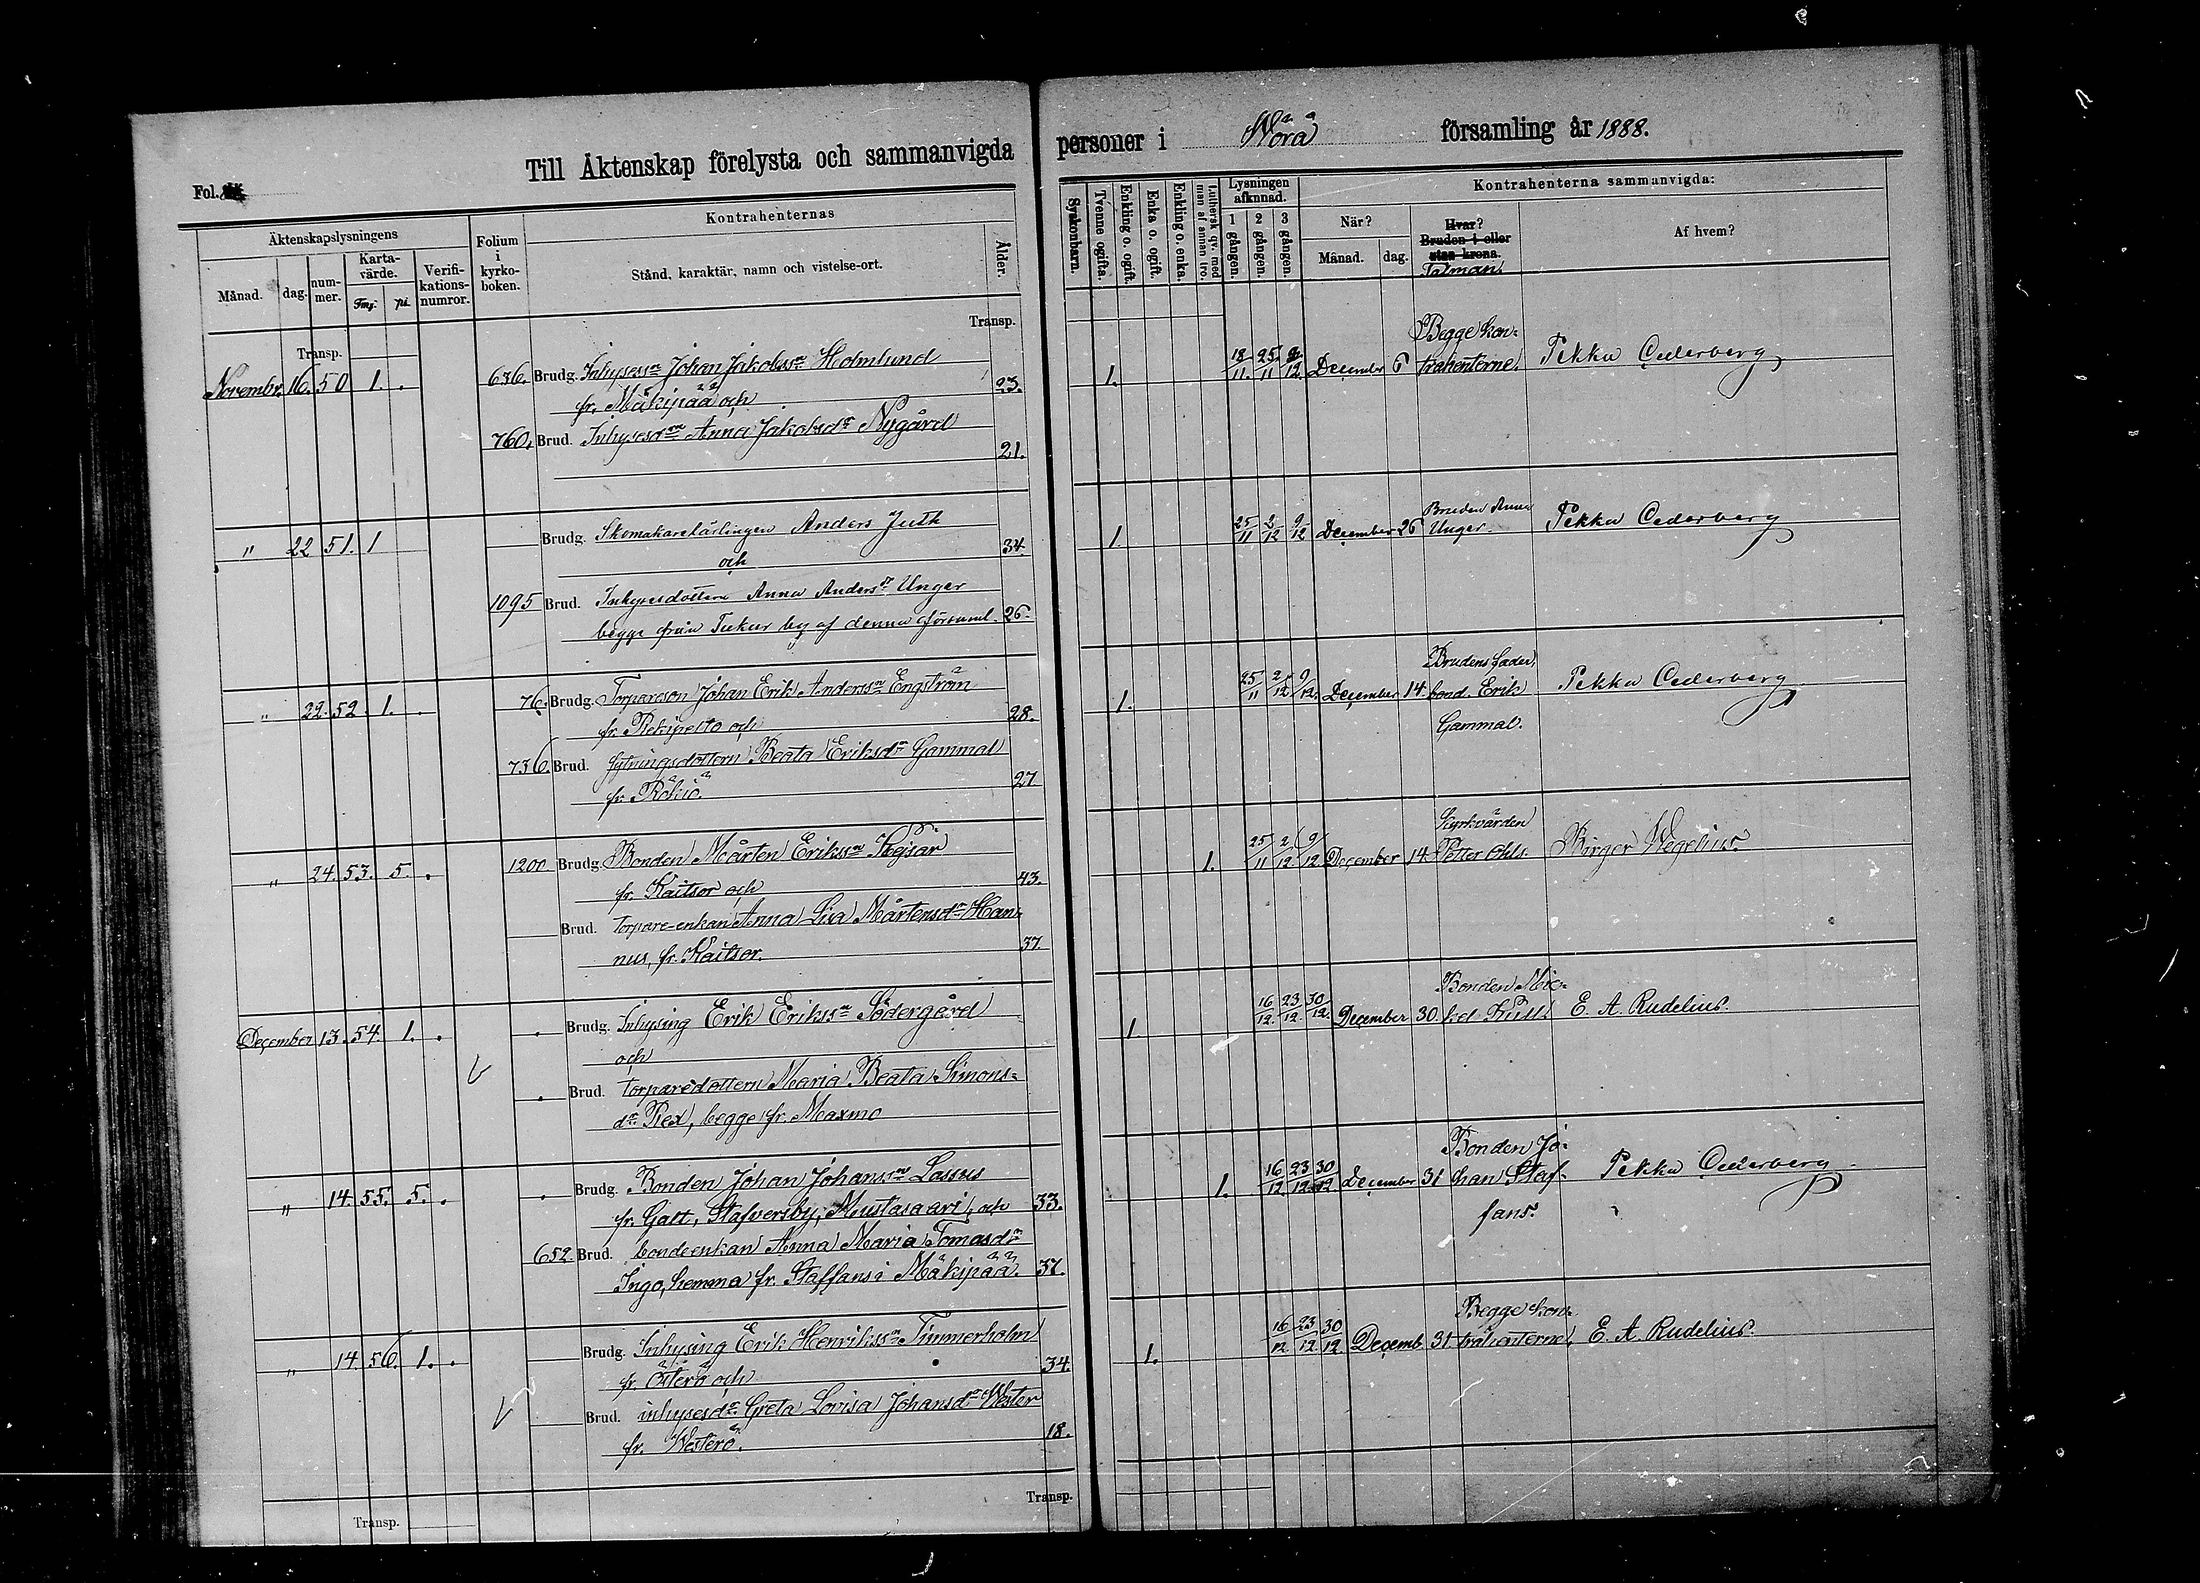 Till Äktenskap förelysta och sammanvigda
personer i Wörå församling år 1888.
Fol.
Äktenskapslysningens
Folium i kyrko-boken.
Kontrahenternas
Månad. dag. num-mer. Karta-värde. Fmg. pi. Verifi-kations-numror.
Stånd, karaktär, namn och vistelse-ort. Ålder.
Syskonbarn. Tvenne ogifta. Enkling o. ogift. Enka o. ogift. Enkling o. enka. Luthersk qv. med man af annan tro.
Lysningen afkunnad.
1 gången. 2 gången. 3 gången.
Kontrahenterna sammanvigda:
När? Månad. dag.
Hvar? Bruden i eller utan krona.
Talman.
Af hvem?
Transp. Transp.
Novembr. 16. 50 1. . 636. Brudg. Inhysess:n Johan Jakobss:n Holmlund
fr. Mäkipää och 23.
760. Brud. Inhysesd:rn Anna Jakobsd:r Nygård
21.
1. 18/11. 25/11 2/12. December 6 Begge kon-
trahenterne. Pekka Cederberg
" 22 51. 1 Brudg. Skomakarelärlingen Anders Juth
och 34.
1095 Brud. Inhysesdottern Anna Anders:dr Unger
begge från Tukur by af denna församl. 26.
1. 25/11 2/12 9/12 December 26 Bruden Anna
Unger. Pekka Cederberg
" 22. 52. 1. . 76. Brudg. Torpareson Johan Erik Anderss:n Engström
fr. Rekipelto och 28.
736. Brud. Sytningsdottern Beata Eriksd:r Gammal
fr. Rökiö 27
1. 25/11 2/12 9/12. December 14. Brudens fader,
bond. Erik
Gammal. Pekka Cederberg
" 24. 53. 5. . 1200. Brudg. Bonden Mårten Erikss:n Kejsar
fr. Kaitsor och 43.
Brud. torpare-enkan Anna Lisa Mårtensd:r Han-
nus, fr. Kaitsor. 37.
1. 25/11 2/12 9/12 December 14. Kyrkvärden
Petter Ohls. Birger Wegelius.
December 13. 54. 1. . . Brudg. Inhysing Erik Erikss:n Södergård
och
. Brud. torparedottern Maria Beata Simons-
d:r Rex, begge fr. Maxmo
1. 16/12. 23/12 30/12. December 30 Bonden Mic-
kel Kull. E. A. Rudelius.
" 14. 55. 5. . . Brudg. Bonden Johan Johanss:n Lassus
fr. Galt, Stafversby, Mustasaari, och 33.
652 Brud. bondeenkan Anna Maria Tomasd:r
Ingo, hemma fr. Staffans i Mäkipää. 37.
1. 16/12. 23/12 30/12. December 31 Bonden Jo-
han Staf-
fans. Pekka Cederberg
" 14. 56. 1. . Brudg. Inhysing Erik Henrikss:n Timmerholm
fr. Österö och 34.
Brud. inhysesd:r Greta Lovisa Johansd:r Wester
fr. Westerö. 18.
1. 16/12 23/12 30/12 Decemb. 31. Begge kon-
trahenterne. E. A. Rudelius.
Transp. Transp.